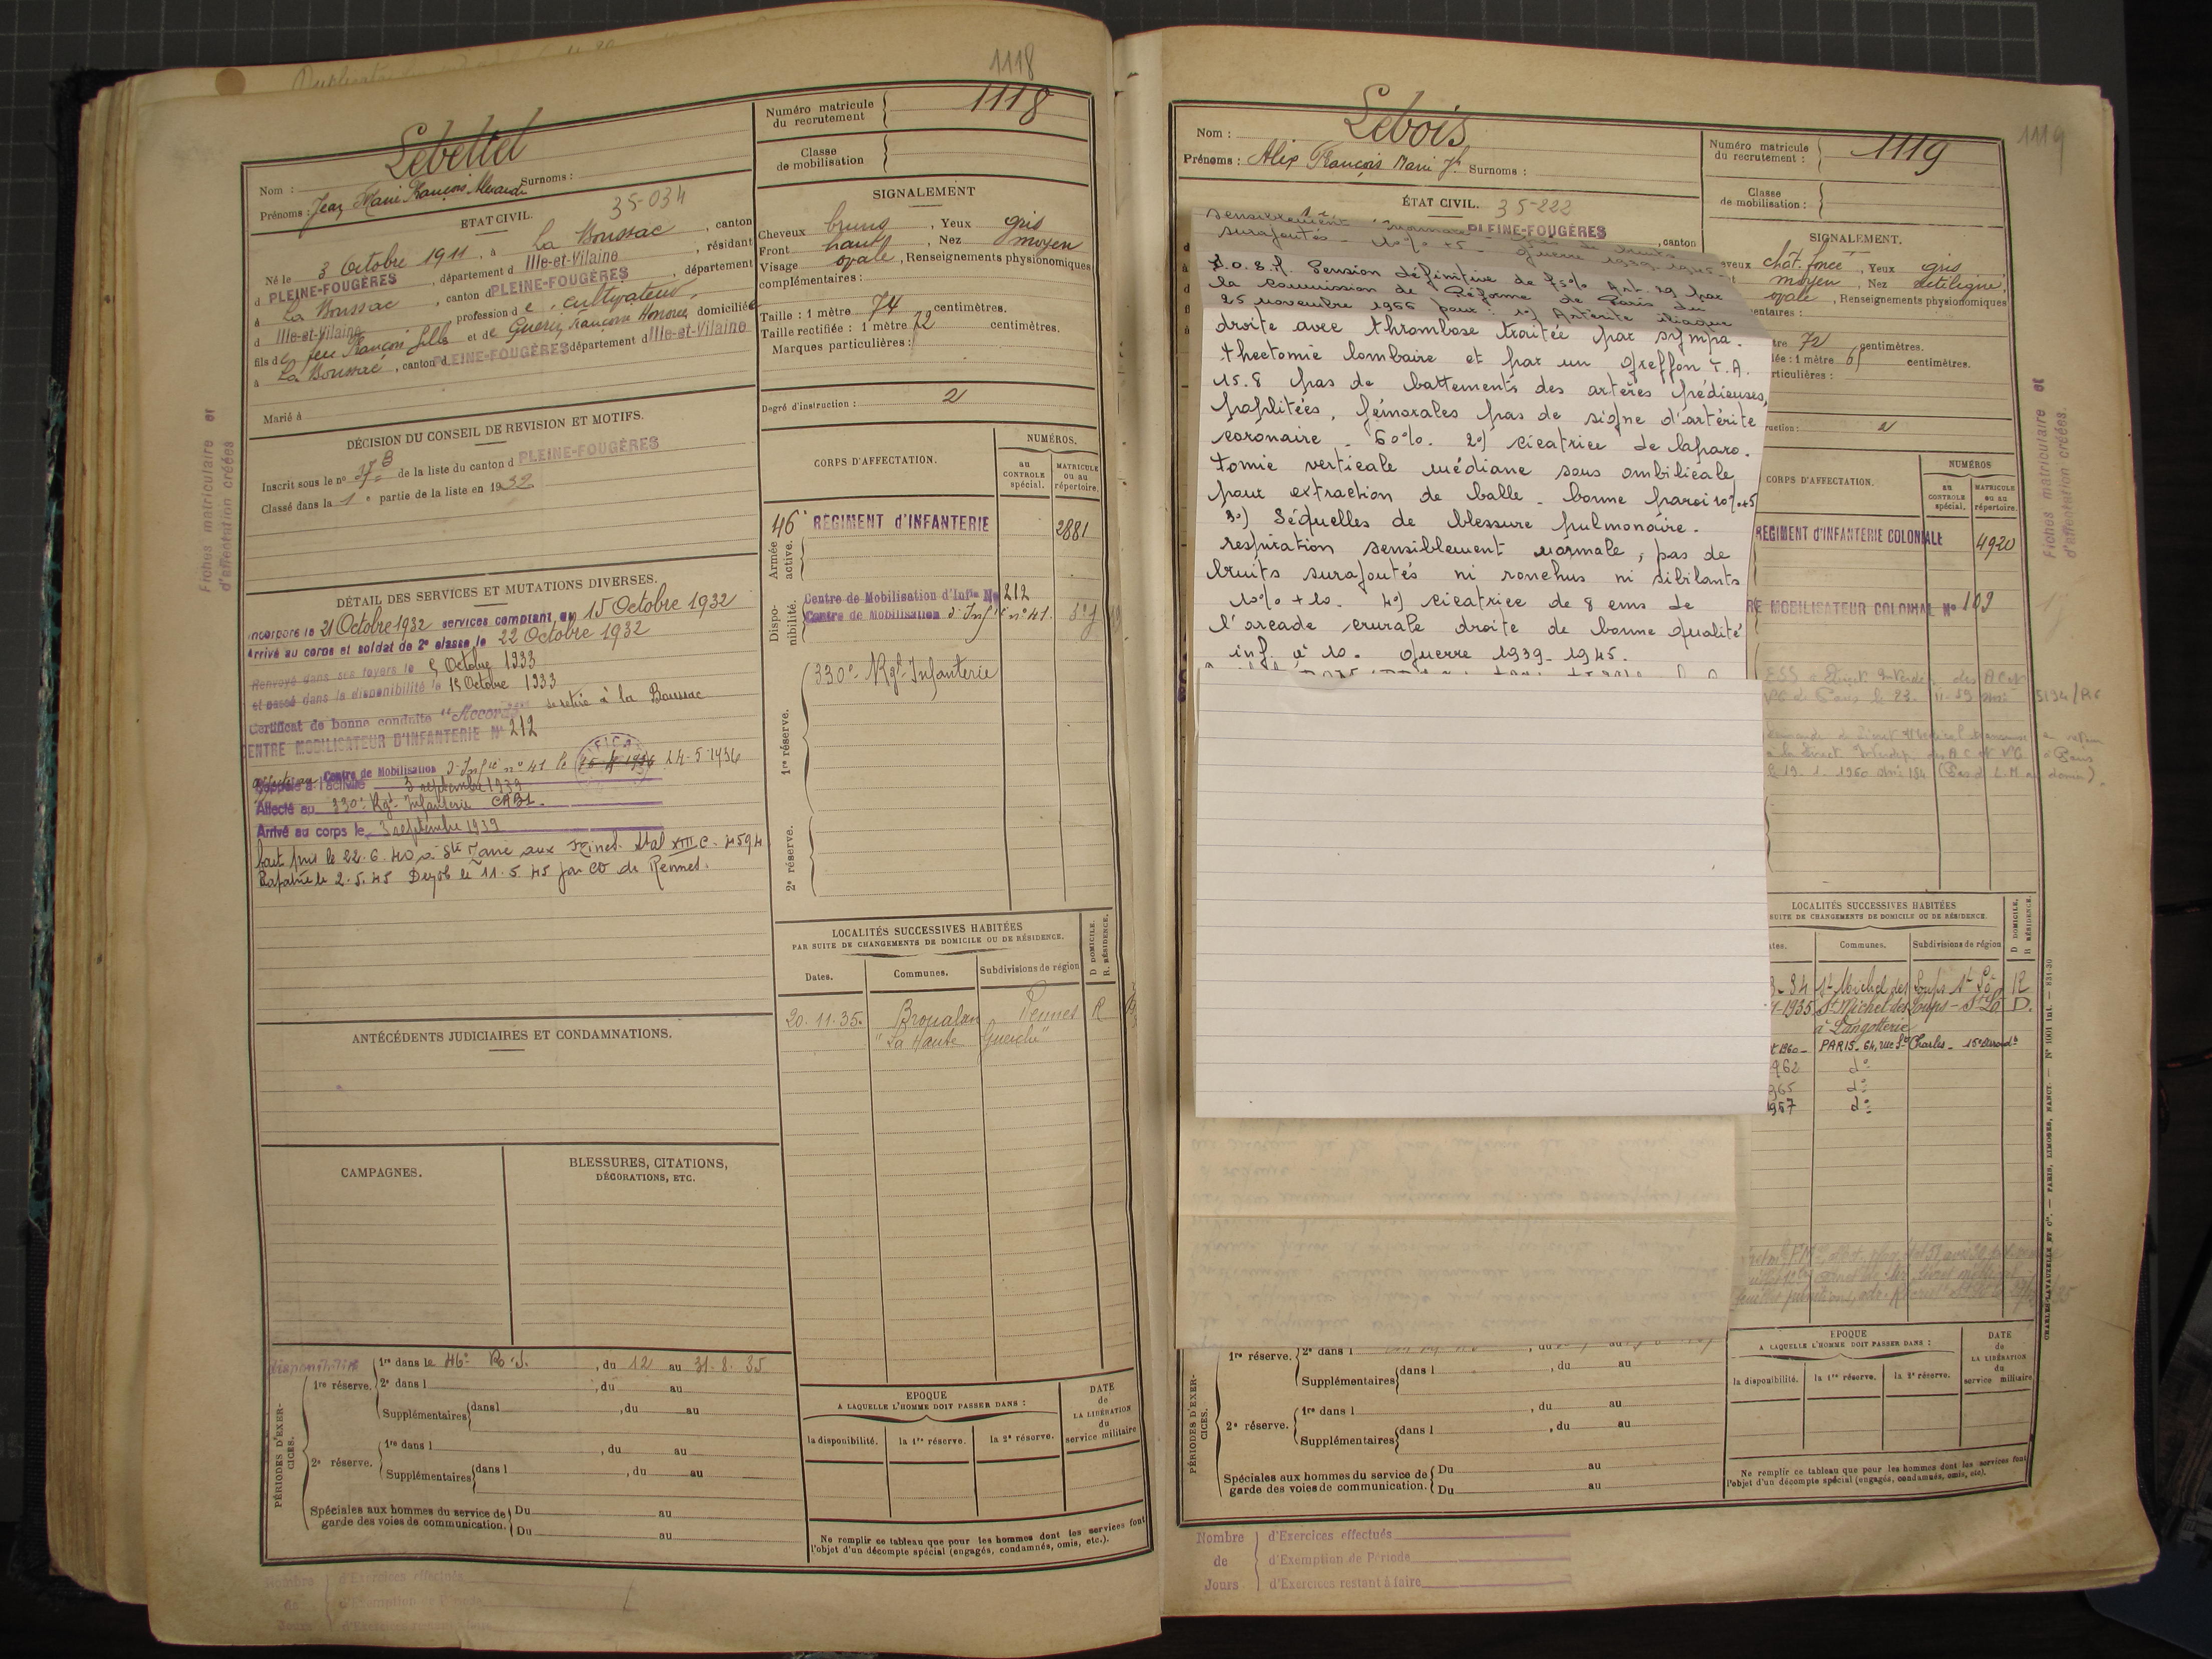 1118
Numéro matricule du recrutement 1118
Classe de mobilisation
Nom : Lebettel
Prénoms : Jean Marie François Surnoms :
ETAT CIVIL. 35-034
Né le 3 Octobre 1911, à La Boussac, canton
d PLEINE-FOUGÈRES, département d Ille-et-Vilaine, résidant
à La Boussac, canton d PLEINE-FOUGÈRES, département
d Ille-et-Vilaine profession de cultivateur,
fils de feu François Gille et de Guerin Françoise Honorée domiciliée
à La Boussac, canton d PLEINE-FOUGÈRES département d Ille-et-Vilaine
Marié à
SIGNALEMENT
Cheveux bruns, Yeux gris
Front haut, Nez moyen
Visage ovale, Renseignements physionomiques
complémentaires :
Taille : 1 mètre 74 centimètres.
Taille rectifiée : 1 mètre 72 centimètres.
Marques particulières :
Degré d'instruction : 2
DÉCISION DU CONSEIL DE REVISION ET MOTIFS.
Inscrit sous le n° de la liste du canton d PLEINE-FOUGÈRES
Classé dans la 1e partie de la liste en 1932
Fiches matriculaire et
d'affectation créées
CORPS D'AFFECTATION.
NUMÉROS.
au CONTROLE spécial.
MATRICULE ou au répertoire.
Armée active.
46e REGIMENT d'INFANTERIE 2881
Disponibilité.
Centre de Mobilisation d'Infie No 212
Centre de Mobilisation d'Infie n° 41.
1re réserve.
330e Rgt Infanterie
2e réserve.
DÉTAIL DES SERVICES ET MUTATIONS DIVERSES.
Incorporé le 21 Octobre 1932 services comptant du 15 Octobre 1932
Arrivé au corps et soldat de 2e classe le 22 Octobre 1932
Renvoyé dans ses foyers le 5 Octobre 1933
et passé dans la disponibilité le 15 Octobre 1933
Certificat de bonne conduite "Accordé" se retire à la Boussac
CENTRE MOBILISATEUR D'INFANTERIE N° 212
Affecté au Centre de Mobilisation d'Infie n° 41 le 14-5-1936
Rappelé à l'activité 3 septembre 1939
Affecté au 330e Rgt Infanterie
Arrivé au corps le 3 septembre 1939
fait pris le 22.6.40 à Ste Marie aux Mines. Stal XIII C. 4594
Rapatrié le 2.5.45 Demob le 11.5.45 par CD de Rennes.
LOCALITÉS SUCCESSIVES HABITÉES
PAR SUITE DE CHANGEMENTS DE DOMICILE OU DE RÉSIDENCE.
D DOMICILE. R. RÉSIDENCE.
Dates. Communes. Subdivisions de région
20.11.35. Broualan Rennes R
"La Haute Guerche"
ANTÉCÉDENTS JUDICIAIRES ET CONDAMNATIONS.
CAMPAGNES.
BLESSURES, CITATIONS,
DÉCORATIONS, ETC.
PÉRIODES D'EXERCICES.
disponibilité
1re dans le 46e R.I., du 12 au 31.8.35
1re réserve. 2e dans l , du au
Supplémentaires dans l , du au
2e réserve. 1re dans l , du au
Supplémentaires dans l , du au
Spéciales aux hommes du service de garde des voies de communication. Du au
Du au
EPOQUE
A LAQUELLE L'HOMME DOIT PASSER DANS :
la disponibilité. la 1re réserve. la 2e réserve.
DATE de LA LIBÉRATION du service militaire
Ne remplir ce tableau que pour les hommes dont les services font
l'objet d'un décompte spécial (engagés, condamnés, omis, etc.).
Nombre de Jours
d'Exercices effectués
d'Exemption de Période
d'Exercices restant à faire
1119
Nom : Lebois
Prénoms : Alix François Marie Surnoms :
Numéro matricule du recrutement : 1119
Classe de mobilisation :
ÉTAT CIVIL. 35-222
PLEINE-FOUGÈRES, canton
SIGNALEMENT.
chât. foncé, Yeux gris
moyen, Nez rectiligne
ovale, Renseignements physionomiques
72 centimètres.
1 mètre centimètres.
particulières :
2
sensiblement
surajoutés - 10% +5 - Guerre 1939-1945
Pension définitive de 75% Art. 29 par
la Commission de Réforme de Paris du
25 novembre 1966 pour : 1°) Artérite iliaque
droite avec thrombose traitée par sympa.
thectomie lombaire et par un greffon T.A.
15.8 pas de battements des artères pédieuses,
poplitées, fémorales pas de signe d'artérite
coronaire - 60%. 2°) cicatrice de laparo.
tomie verticale médiane sous ombilicale
pour extraction de balle - bonne paroi 10%+5
3°) Séquelles de blessure pulmonaire.
respiration sensiblement normale, pas de
bruits surajoutés ni ronchus ni sibilants
10% +10. 4°) cicatrice de 8 cms de
l'arcade crurale droite de bonne qualité
inf. à 10. Guerre 1939-1945.
CORPS D'AFFECTATION.
NUMÉROS
au CONTROLE spécial.
MATRICULE ou au répertoire.
REGIMENT d'INFANTERIE COLONIALE 4920
MOBILISATEUR COLONIAL N° 109
Fiches matriculaire et
d'affectation créées.
LOCALITÉS SUCCESSIVES HABITÉES
SUITE DE CHANGEMENTS DE DOMICILE OU DE RÉSIDENCE.
D DOMICILE. R RÉSIDENCE.
Communes. Subdivisions de région
St Michel des Loups St Lô R
1935 St Michel des Loups - St Lô D.
à Langotterie
1960 - PARIS - 64, rue St Charles - 15e
1962 do
1965 do
1967 do
CHARLES-LAVAUZELLE ET Cie. — PARIS, LIMOGES, NANCY. — N° 1001 int. — 831-30
PÉRIODES D'EXERCICES.
1re réserve. 2e dans l
Supplémentaires dans l , du au
2e réserve. 1re dans l , du au
Supplémentaires dans l , du au
Spéciales aux hommes du service de garde des voies de communication. Du au
Du au
EPOQUE
A LAQUELLE L'HOMME DOIT PASSER DANS :
la disponibilité. la 1re réserve. la 2e réserve.
DATE de LA LIBÉRATION du service militaire
Ne remplir ce tableau que pour les hommes dont les services font
l'objet d'un décompte spécial (engagés, condamnés, omis, etc).
Nombre de Jours
d'Exercices effectués
d'Exemption de Période
d'Exercices restant à faire